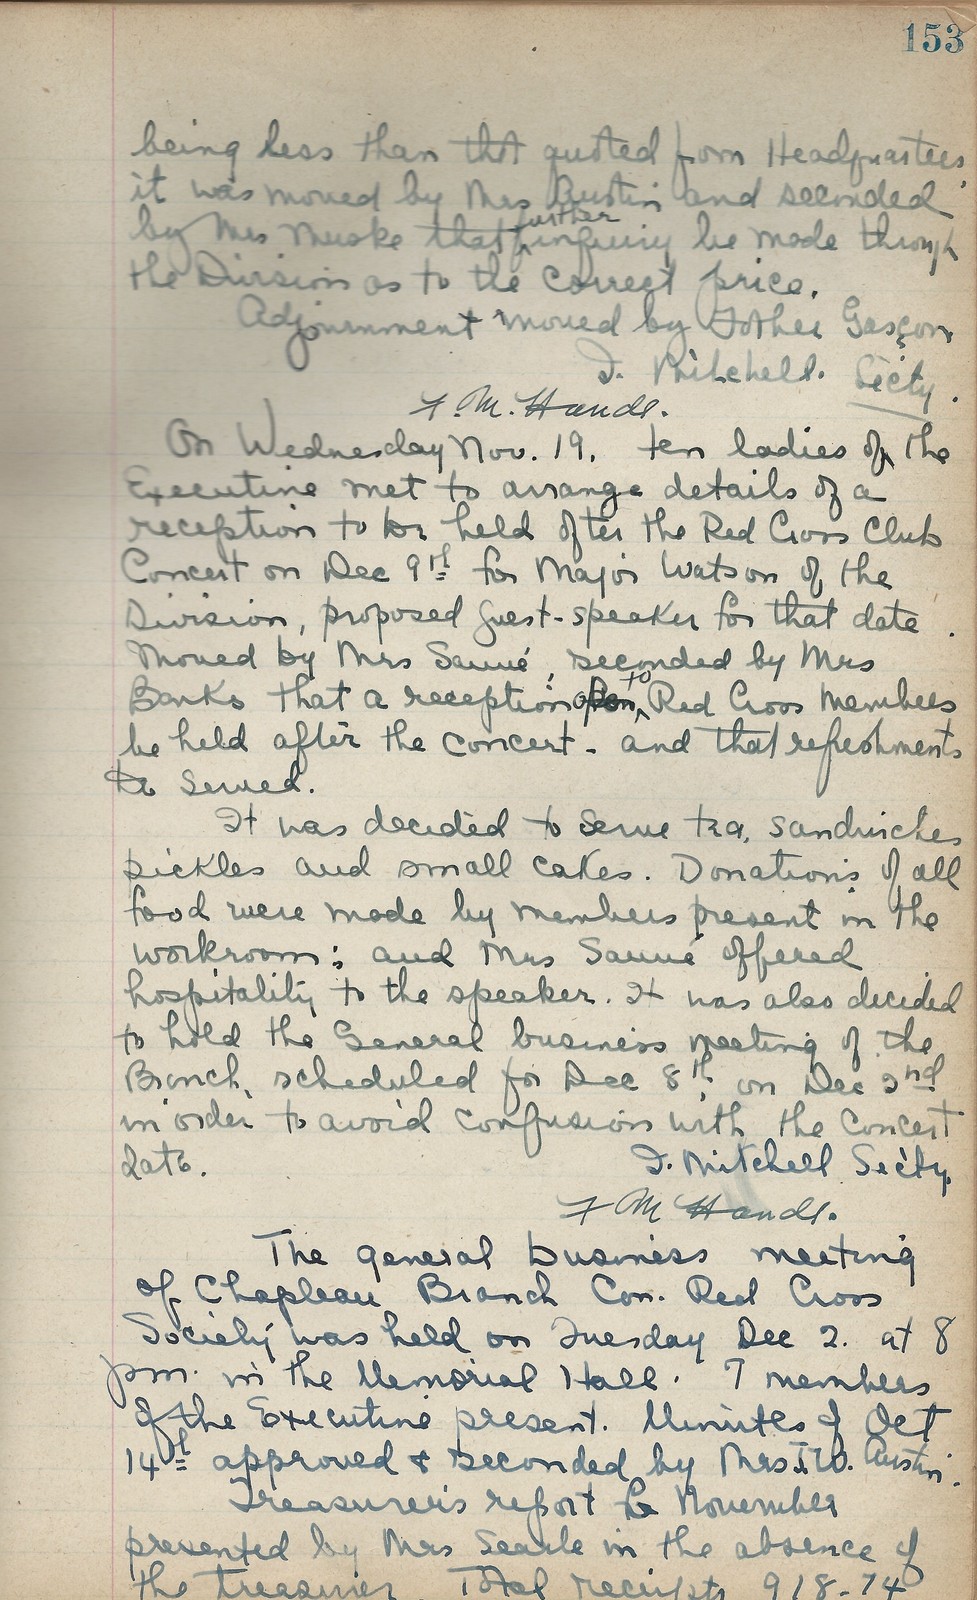 153
being less than that quoted from Headquarters
it was moved by Mrs Austin and seconded
by Mrs Muske that further inquiry be made through
the Division as to the correct price.
Adjournment moved by Father Gascon
I. Mitchell. Sec'ty.
F. M. Hands.
On Wednesday Nov. 19. ten ladies of the
Executive met to arrange details of a
reception to be held after the Red Cross Club
Concert on Dec 9th for Major Watson of the
Division, proposed guest-speaker for that date.
Moved by Mrs Sauvé, seconded by Mrs
Banks that a reception open to Red Cross Members
be held after the concert - and that refreshments
be served.
It was decided to serve tea, sandwiches
pickles and small cakes. Donations of all
food were made by members present in the
workroom; and Mrs Sauvé offered
hospitality to the speaker. It was also decided
to hold the General business meeting of the
Branch, scheduled for Dec 8th, on Dec 2nd
in order to avoid confusion with the Concert
date. I. Mitchell Sec'ty.
F M Hands.
The general business meeting
of Chapleau Branch Can. Red Cross
Society was held on Tuesday Dec 2. at 8
pm. in the Memorial Hall. 7 members
of the Executive present. Minutes of Oct
14th approved & seconded by Mrs I.W. Austin.
Treasurer's report for November
presented by Mrs Searle in the absence of
the treasurer. Total receipts 918-74